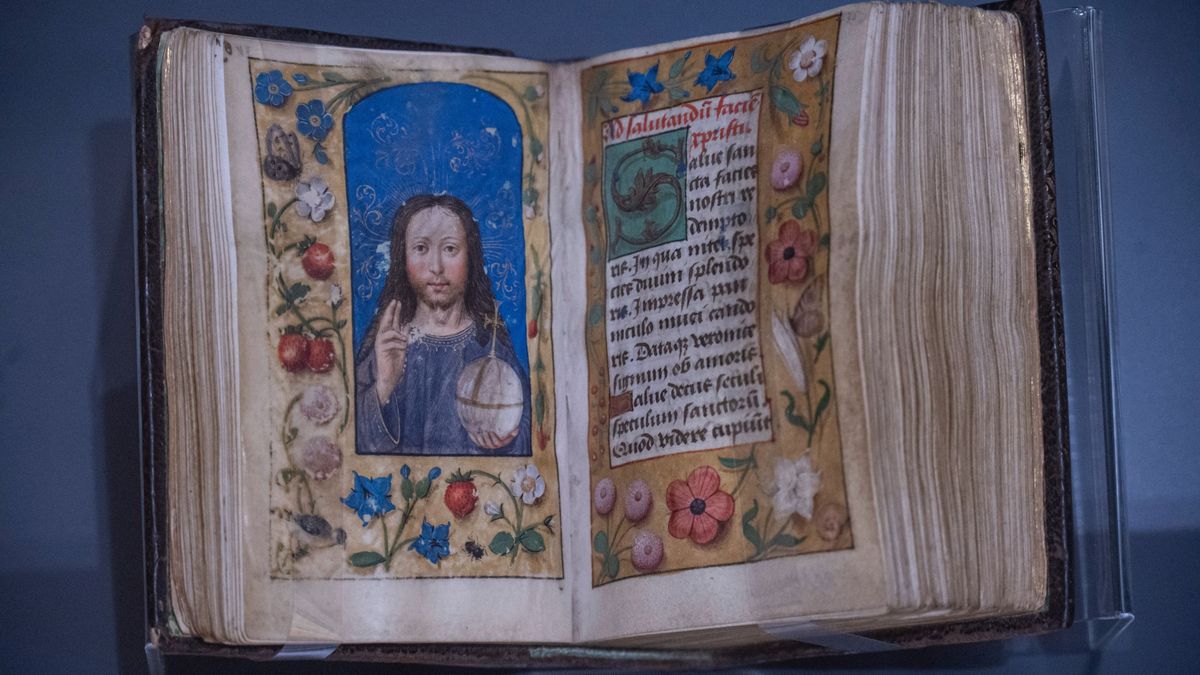 Ad salutandū faciē
xpristi.
alue san
cta facies
nostri re
dempto
ris. In qua nitet spe
cies diuini splendo
ris. Impressa pan
niculo niuei cando
ris. Dataqȝ veronice
signum ob amoris.
Salue decus seculi
speculum sanctorū
Quod videre cupiūt